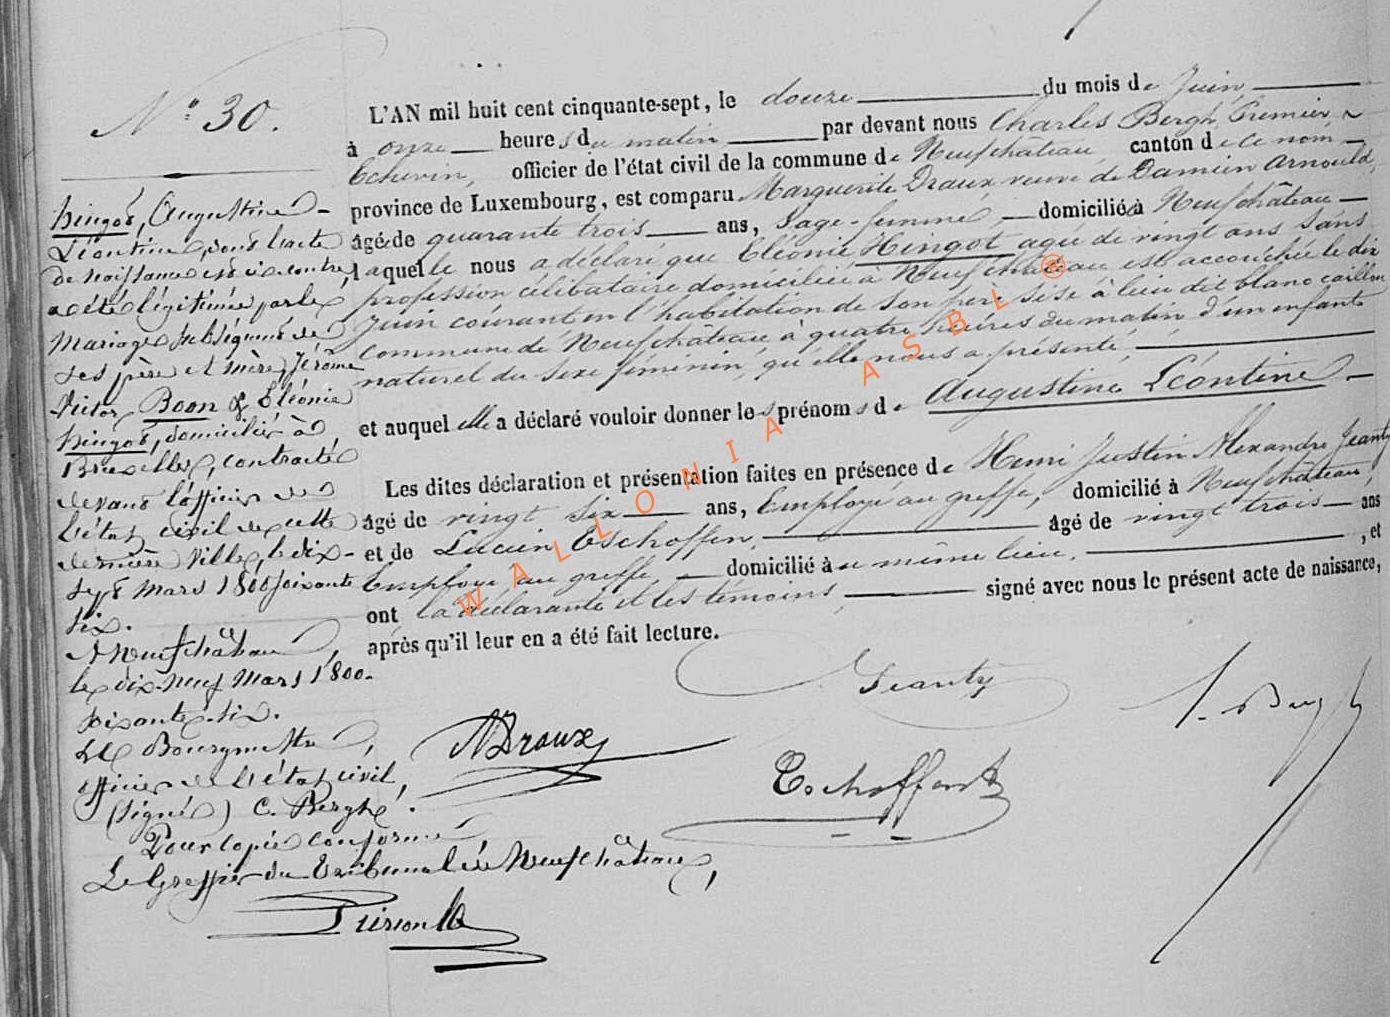 N.° 30.
L'AN mil huit cent cinquante-sept, le douze du mois de Juin
à onze heures du matin par devant nous Charles Bergh, Premier
Echevin, officier de l'état civil de la commune de Neufchâteau, canton de ce nom,
province de Luxembourg, est comparu Marguerite Draux veuve de Damien Arnould,
âgée de quarante trois ans, Sage-femme, domiciliée à Neufchâteau
laquelle nous a déclaré que Eléonie Hingot agée de vingt ans sans
profession célibataire domiciliée à Neufchâteau est accouchée le dix
Juin courant en l'habitation de son père sise à lieu dit blanc caillou
commune de Neufchâteau à quatre heures du matin d'un enfant
naturel du sexe féminin, qu'elle nous a présenté,
et auquel elle a déclaré vouloir donner les prénoms de Augustine Léontine
Les dites déclaration et présentation faites en présence de Henri Justin Alexandre Jeanty
âgé de vingt six ans, Employé au greffe, domicilié à Neufchâteau,
et de Lucien Eschoffen, âgé de vingt trois ans
Employé au greffe, domicilié à ce même lieu, , et
ont la déclarante et les témoins, signé avec nous le présent acte de naissance,
après qu'il leur en a été fait lecture.
Hingot, Augustine
Léontine, dont l'acte
de naissance est ci contre,
a été légitimée par le
Mariage subséquent de
ses père et mère, Jérôme
Victor Boon & Eléonie
Hingot, domiciliés à
Bruxelles, contracté
devant l'officier de
l'état civil de cette
dernière Ville, le dix-
sept Mars 1800 soixante
six.
A Neufchâteau,
le dix-neuf Mars 1800-
soixante-six.
Le Bourgmestre,
officier de l'état civil,
(signé) C. Berghé.
Pour copie conforme
Le Greffier du Tribunal de Neufchâteau,
Jeanty
MDraux
Eschoffen
WALLONIA ASBL ®